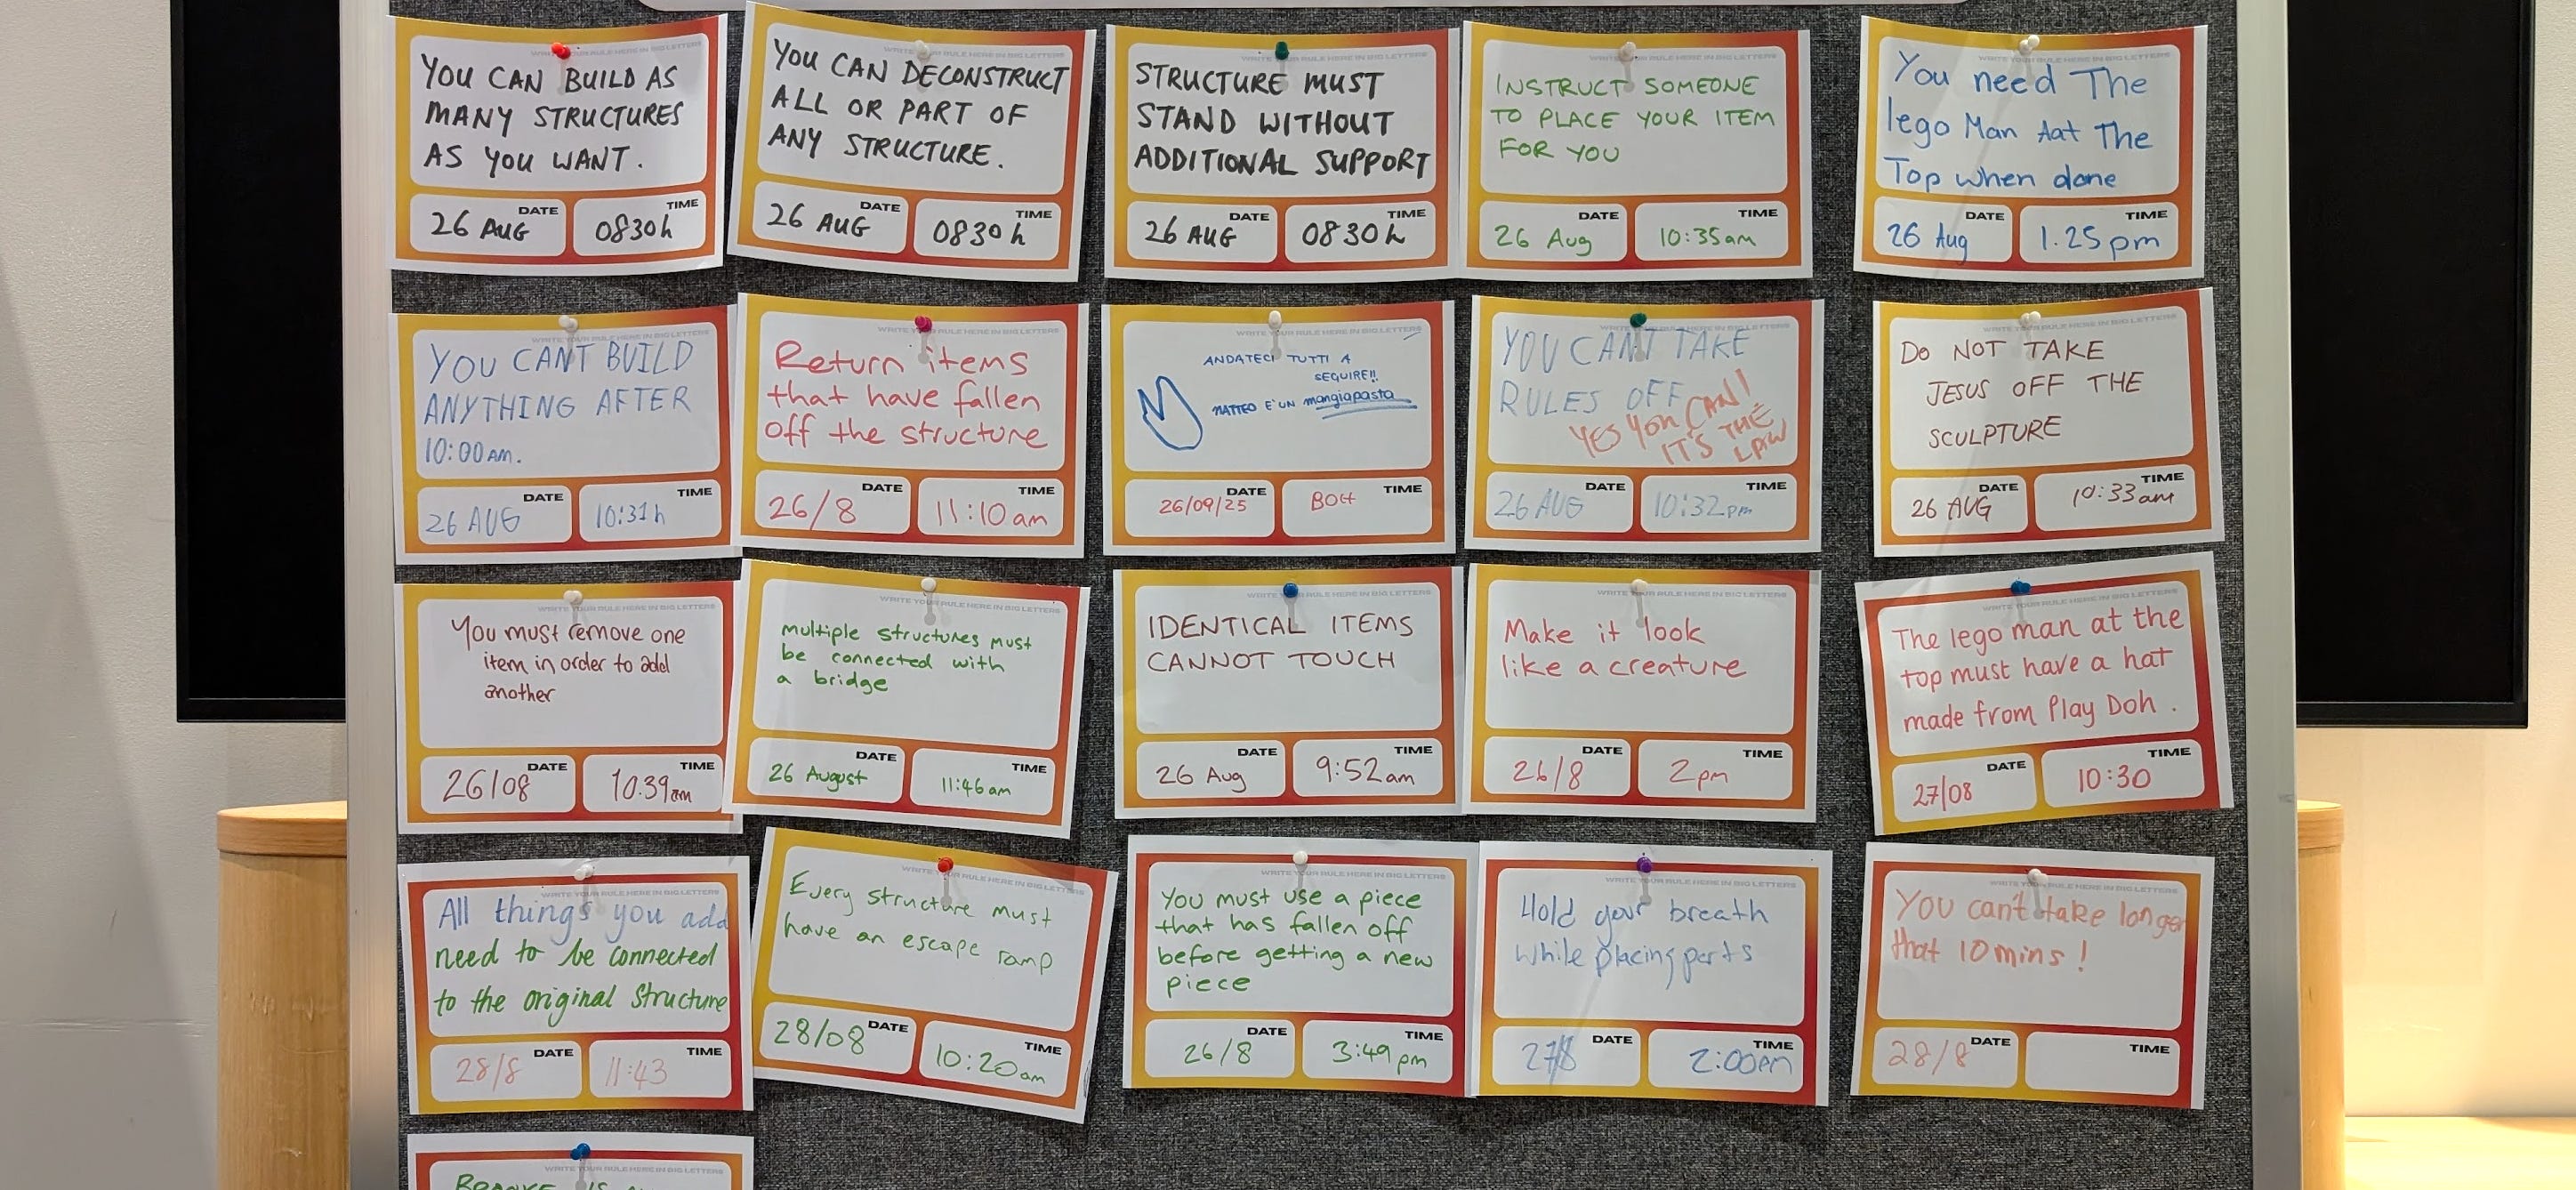 WRITE YOUR RULE HERE IN BIG LETTERS
YOU CAN BUILD AS
MANY STRUCTURES
AS YOU WANT.
DATE
26 AUG
TIME
0830h
WRITE YOUR RULE HERE IN BIG LETTERS
YOU CAN DECONSTRUCT
ALL OR PART OF
ANY STRUCTURE.
DATE
26 AUG
TIME
0830h
WRITE YOUR RULE HERE IN BIG LETTERS
STRUCTURE MUST
STAND WITHOUT
ADDITIONAL SUPPORT
DATE
26 AUG
TIME
0830h
WRITE YOUR RULE HERE IN BIG LETTERS
INSTRUCT SOMEONE
TO PLACE YOUR ITEM
FOR YOU
DATE
26 Aug
TIME
10:35am
WRITE YOUR RULE HERE IN BIG LETTERS
You need The
lego Man Aat The
Top when done
DATE
26 Aug
TIME
1.25pm
WRITE YOUR RULE HERE IN BIG LETTERS
YOU CANT BUILD
ANYTHING AFTER
10:00AM.
DATE
26 AUG
TIME
10:31h
WRITE YOUR RULE HERE IN BIG LETTERS
Return items
that have fallen
off the structure
DATE
26/8
TIME
11:10am
WRITE YOUR RULE HERE IN BIG LETTERS
ANDATECI TUTTI A
SEGUIRE!!
MATTEO E' UN mangiapasta
DATE
26/09/25
TIME
BOH
WRITE YOUR RULE HERE IN BIG LETTERS
YOU CAN'T TAKE
RULES OFF
YES YOU CAN!
IT'S THE
LAW
DATE
26 AUG
TIME
10:32pm
WRITE YOUR RULE HERE IN BIG LETTERS
DO NOT TAKE
JESUS OFF THE
SCULPTURE
DATE
26 AUG
TIME
10:33am
WRITE YOUR RULE HERE IN BIG LETTERS
You must remove one
item in order to add
another
DATE
26/08
TIME
10.39am
WRITE YOUR RULE HERE IN BIG LETTERS
multiple structures must
be connected with
a bridge
DATE
26 August
TIME
11:46am
WRITE YOUR RULE HERE IN BIG LETTERS
IDENTICAL ITEMS
CANNOT TOUCH
DATE
26 Aug
TIME
9:52am
WRITE YOUR RULE HERE IN BIG LETTERS
Make it look
like a creature
DATE
26/8
TIME
2pm
WRITE YOUR RULE HERE IN BIG LETTERS
The lego man at the
top must have a hat
made from Play Doh.
DATE
27/08
TIME
10:30
WRITE YOUR RULE HERE IN BIG LETTERS
All things you add
need to be connected
to the original structure
DATE
28/8
TIME
11:43
WRITE YOUR RULE HERE IN BIG LETTERS
Every structure must
have an escape ramp
DATE
28/08
TIME
10:20am
You must use a piece
that has fallen off
before getting a new
piece
DATE
26/8
TIME
3:49pm
WRITE YOUR RULE HERE IN BIG LETTERS
Hold your breath
while placing parts
DATE
27/8
TIME
2:00pm
WRITE YOUR RULE HERE IN BIG LETTERS
You can't take longer
that 10 mins!
DATE
28/8
TIME
WRITE YOUR RULE HERE IN BIG LETTERS
IS